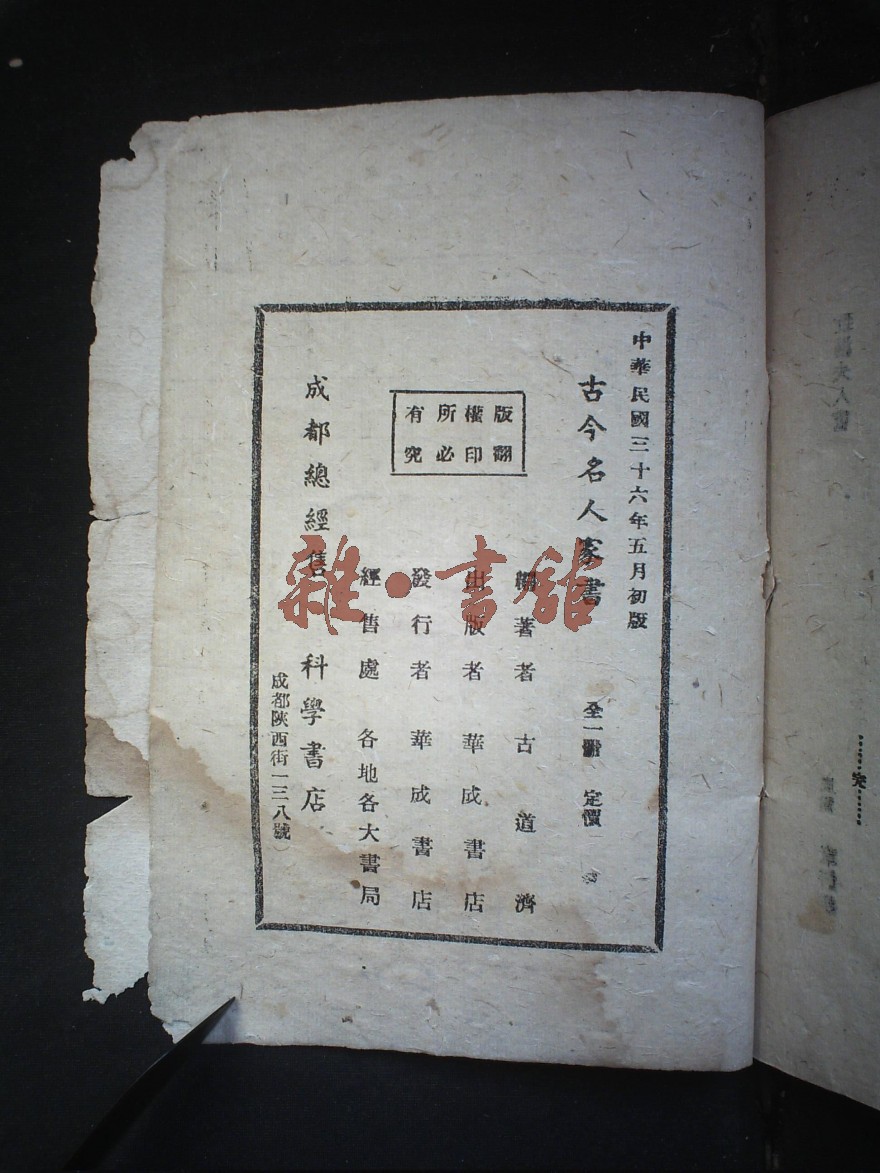 中華民國三十六年五月初版
古今名人家書 全一冊 定價
編著者 古道濟
出版者 華成書店
發行者 華成書店
經售處 各地各大書局
版權所有
翻印必究
成都總經售 科學書店
成都陝西街一三八號
雜·書館
完